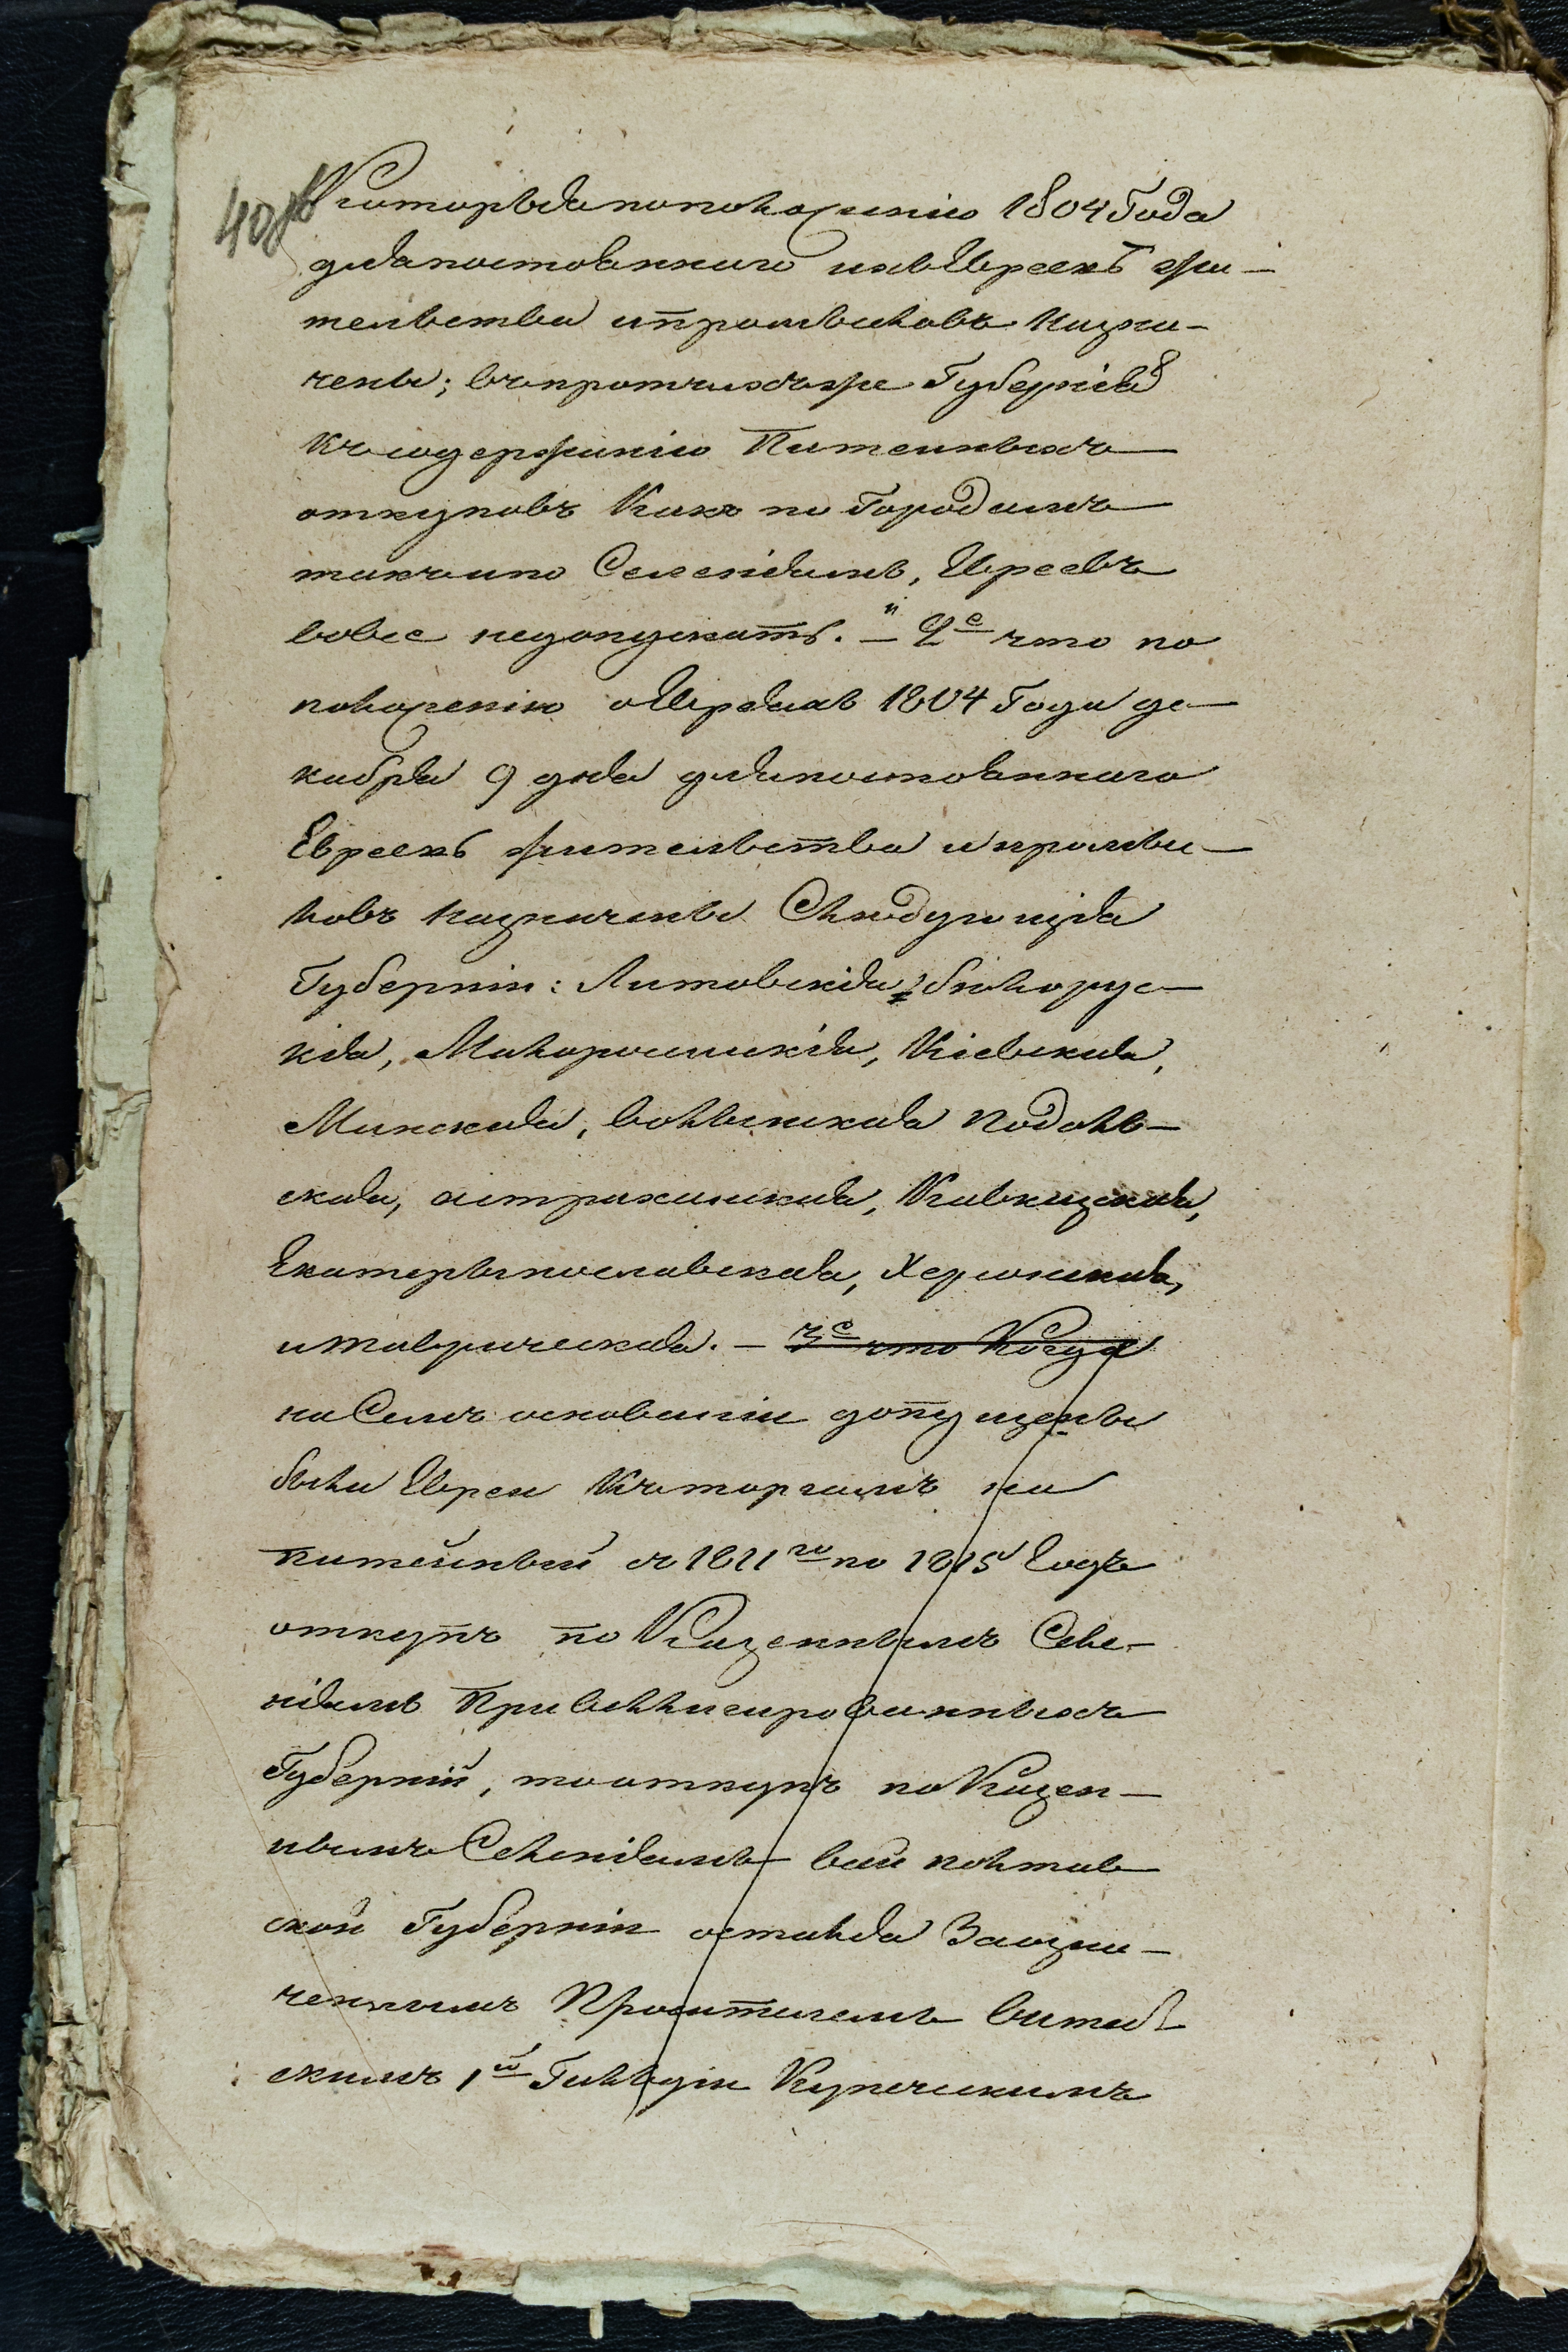 40 об
Которыя по положенію 1804 Года
для постояннаго ихъ Евреевъ жи-
тельства и промысловъ назна-
чены; въ протчихъ же Губерніяхъ
къ содержанію Питейныхъ
откуповъ Какъ по Городамъ
такъ и по Селеніямъ, Евреевъ
вовсе недопускать. – и 2е что по
положенію о Евреяхъ 1804 Года де-
кабря 9 дня для постояннаго
Евреевъ жительства и промы-
словъ назначены Слѣдующія
Губерніи: Литовскія, бѣлорус-
кія, Малороссискія, Кіевская,
Минская, волынская Подоль-
ская, астраханская, Кавказская,
Екатериносла­вская, Херсонская,
и таврическая. – 3е что Когда
на Семъ основаніи допущены
были Евреи Къ торгамъ на
питейный съ 1811го по 1815 Годъ
откупъ по Казеннымъ Селе-
ніямъ Привиллигированныхъ
Губерній, то откупъ по Казен-
нымъ Селеніямъ всей полтав
ской Губерніи остался За озна-
ченнымъ Просителемъ витеб
скимъ 1й Гильдіи Купеческимъ